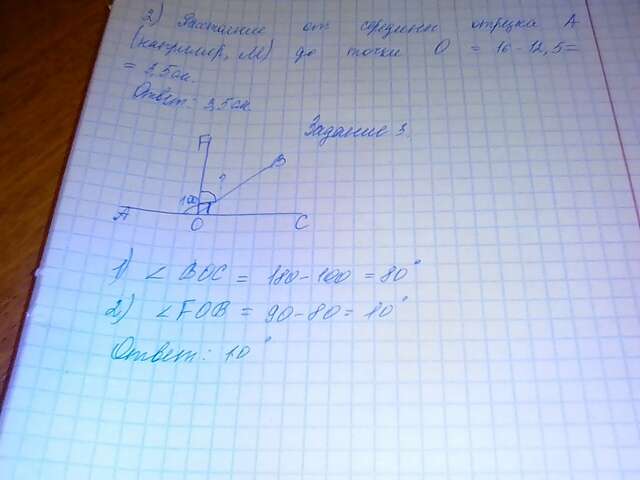 2) Расстояние от середины отрезка А
(например, М) до точки О = 16 - 12,5 =
= 3,5 см.
Ответ: 3,5 см
Задание 3.
F
?
B
100
A
O
C
1) ∠ BOC = 180 - 100 = 80°
2) ∠ FOB = 90 - 80 = 10°
Ответ: 10°